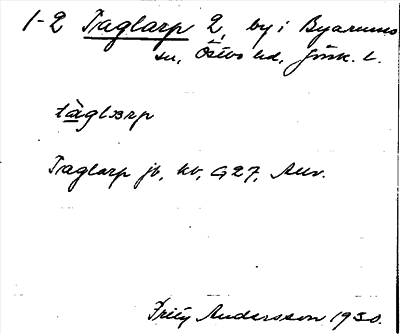 1-2 Taglarp 2, by i Byarums
sn, Östbo hd, Jönk. l.
tàglarp
Taglarp jb, kv, G27, Anv.
Fritz Andersson 1930.